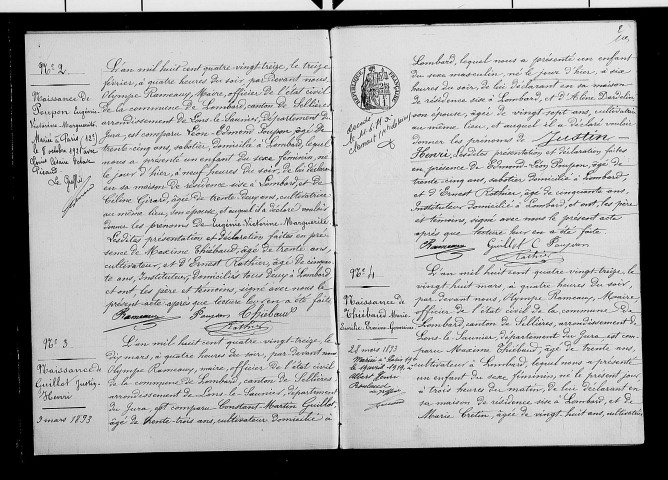 N° 2
Naissance de
Poupon Eugénie
Victorine Marguerite
Mariée à Paris (12e)
le 8 octobre 1921 avec
Picard
Le Greffier
L'an mil huit cent quatre vingt-treize, le treize
février, à quatre heures du soir, par devant nous,
Olympe Rameaux, Maire, officier de l'état civil
de la commune de Lombard, canton de Sellières
arrondissement de Lons-le-Saunier, département du
Jura, est comparu Léon-Edmond Poupon, âgé de
trente-cinq ans, sabotier, domicilié à Lombard, lequel
nous a présenté un enfant du sexe féminin, né
le jour d'hier, à neuf heures du soir, de lui déclarant
en sa maison de résidence sise à Lombard et de
Céline Girard, âgée de trente-deux ans, cultivatrice
au même lieu, son épouse, et auquel il a déclaré vouloir
donner les prénoms de Eugénie Victorine Marguerite
Lesdites présentation et déclaration faites en pré-
sence de Maxime Thiébaud, âgé de trente ans,
cultivateur, et d'Ernest Rothier, âgé de cinquan-
te ans, Instituteur, domiciliés tous deux à Lombard
et ont, les père et témoins, signé avec nous le
présent acte après que lecture leur en a été faite.
Rameaux Poupon Thiébaud
Rothier
N° 3
Naissance de
Guillot Justin-
Henri
9 mars 1893
L'an mil huit cent quatre vingt-treize, le
dix mars, à quatre heures du soir, par devant nous
Olympe Rameaux, maire, officier de l'état civil
de la commune de Lombard, canton de Sellières
arrondissement de Lons-le-Saunier, département
du Jura, est comparu Constant-Martin Guillot
âgé de trente-trois ans, cultivateur domicilié à
RÉPUBLIQUE FRANÇAISE
Lombard, lequel nous a présenté un enfant
du sexe masculin, né le jour d'hier, à six
heures du soir, de lui déclarant en sa maison
de résidence sise à Lombard, et d'Aline Dardelin
son épouse, âgée de vingt sept ans, cultivatrice
au même lieu, et auquel il a déclaré vouloir
donner les prénoms de Justin-
Henri, Lesdites présentation et déclaration faites
en présence de Edmond-Léon Poupon, âgé de
trente-cinq ans, sabotier, domicilié à Lombard,
et d'Ernest Rothier, âgé de cinquante ans,
Instituteur domicilié à Lombard, et ont, les père
et témoins, signé avec nous le présent acte
après que lecture leur en a été faite.
Rameaux Guillot C Poupon
Rothier
N° 4
Naissance de
Thiébaud Marie-
28 mars 1893
le 19 avril 1919
L'an mil huit cent quatre vingt-treize, le
vingt-huit mars, à quatre heures du soir,
par devant nous, Olympe Rameaux, Maire
officier de l'état civil de la commune de
Lombard, canton de Sellières, arrondissement de
Lons-le-Saunier, département du Jura, est com-
paru Maxime Thiébaud, âgé de trente ans,
cultivateur à Lombard, lequel nous a présenté
un enfant du sexe féminin, né le présent jour
à trois heures du matin, de lui déclarant en
sa maison de résidence sise à Lombard, et de
Marie Cretin, âgée de vingt-huit ans, cultivatrice